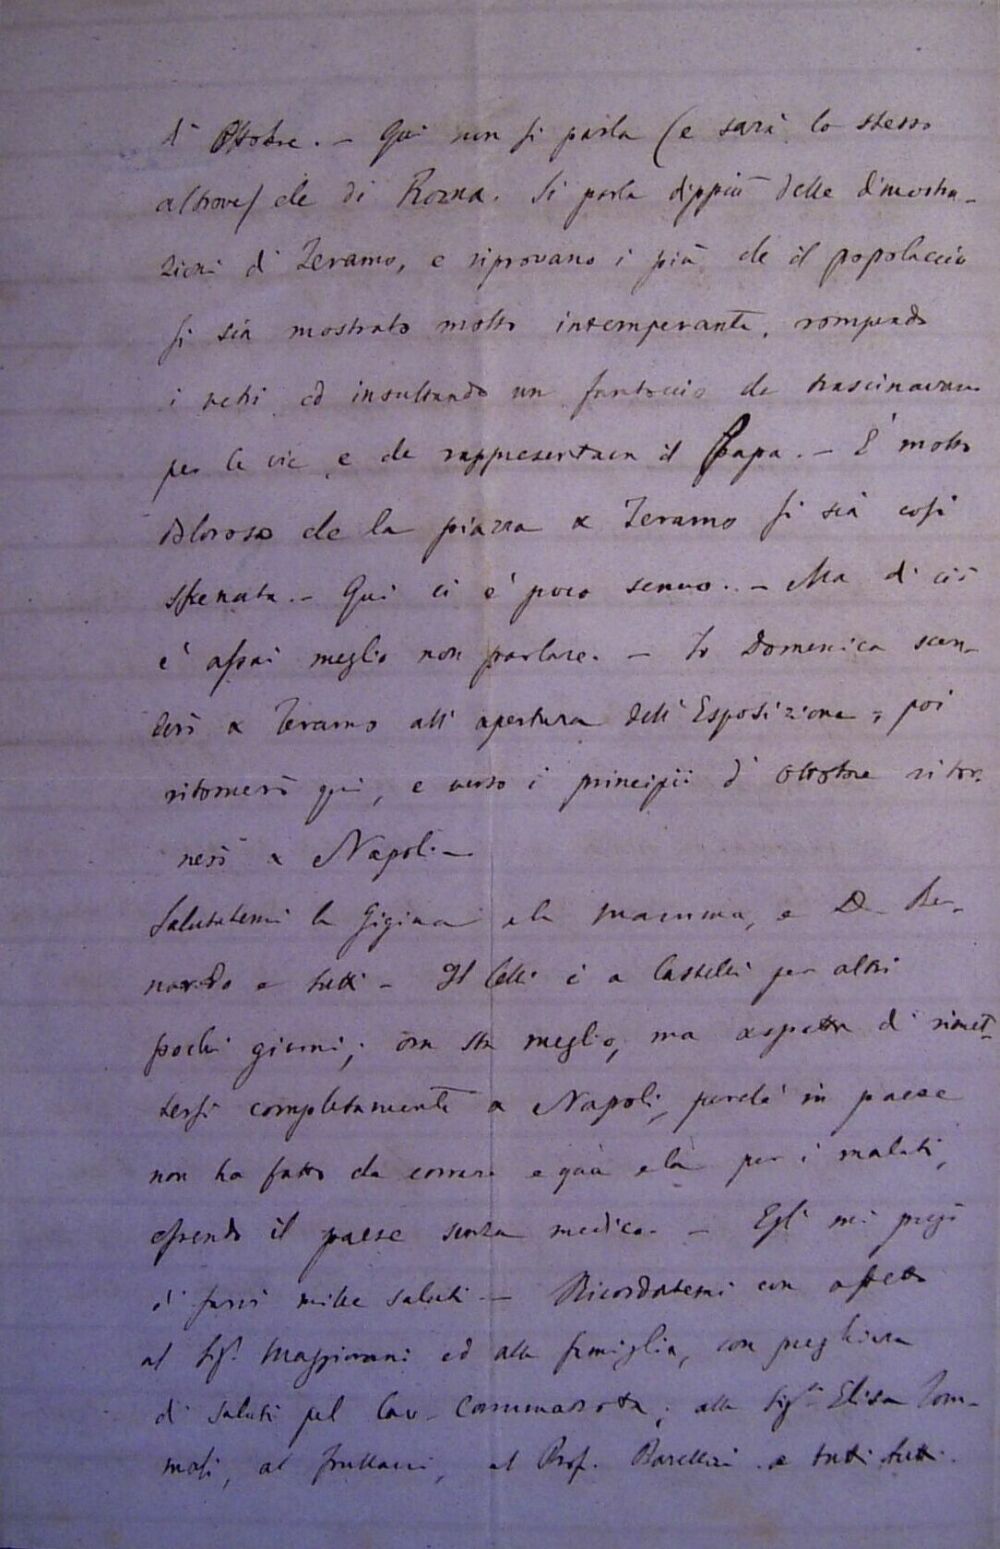 d' Ottobre. - Qui non si parla (e sarà lo stesso
altrove) che di Roma. Si parla dippiù delle dimostra-
zioni di Teramo, e riprovano i più che il popolaccio
si sia mostrato molto intemperante, rompendo
i vetri ed insultando un fantoccio che trascinavano
per le vie e che rappresentava il Papa. - E' molto
doloroso che la piazza a Teramo si sia così
sfrenata. - Qui ci è poco senno. - Ma di ciò
è assai meglio non parlare. - Io Domenica scen-
derò a Teramo all' apertura dell' Esposizione, poi
ritornerò qui, e verso i principii d' Ottobre ritor-
nerò a Napoli. -
Salutatemi la Gigina e la mamma, e D. Ber-
nardo e tutti - Il Celli è a Castelli per altri
pochi giorni; ora sta meglio, ma aspetta di rimet-
tersi completamente a Napoli, perchè in paese
non ha fatto che correre e quà e là per i malati,
essendo il paese senza medico. - Egli mi pregò
di farvi mille saluti - Ricordatemi con affetto
al Sigr. Maggiorani ed alla famiglia, con preghiera
di saluti pel Cav. Cammarota; alla Sigra Elisa Tom-
masi, al, al Prof. Barellai e tutti tutti.